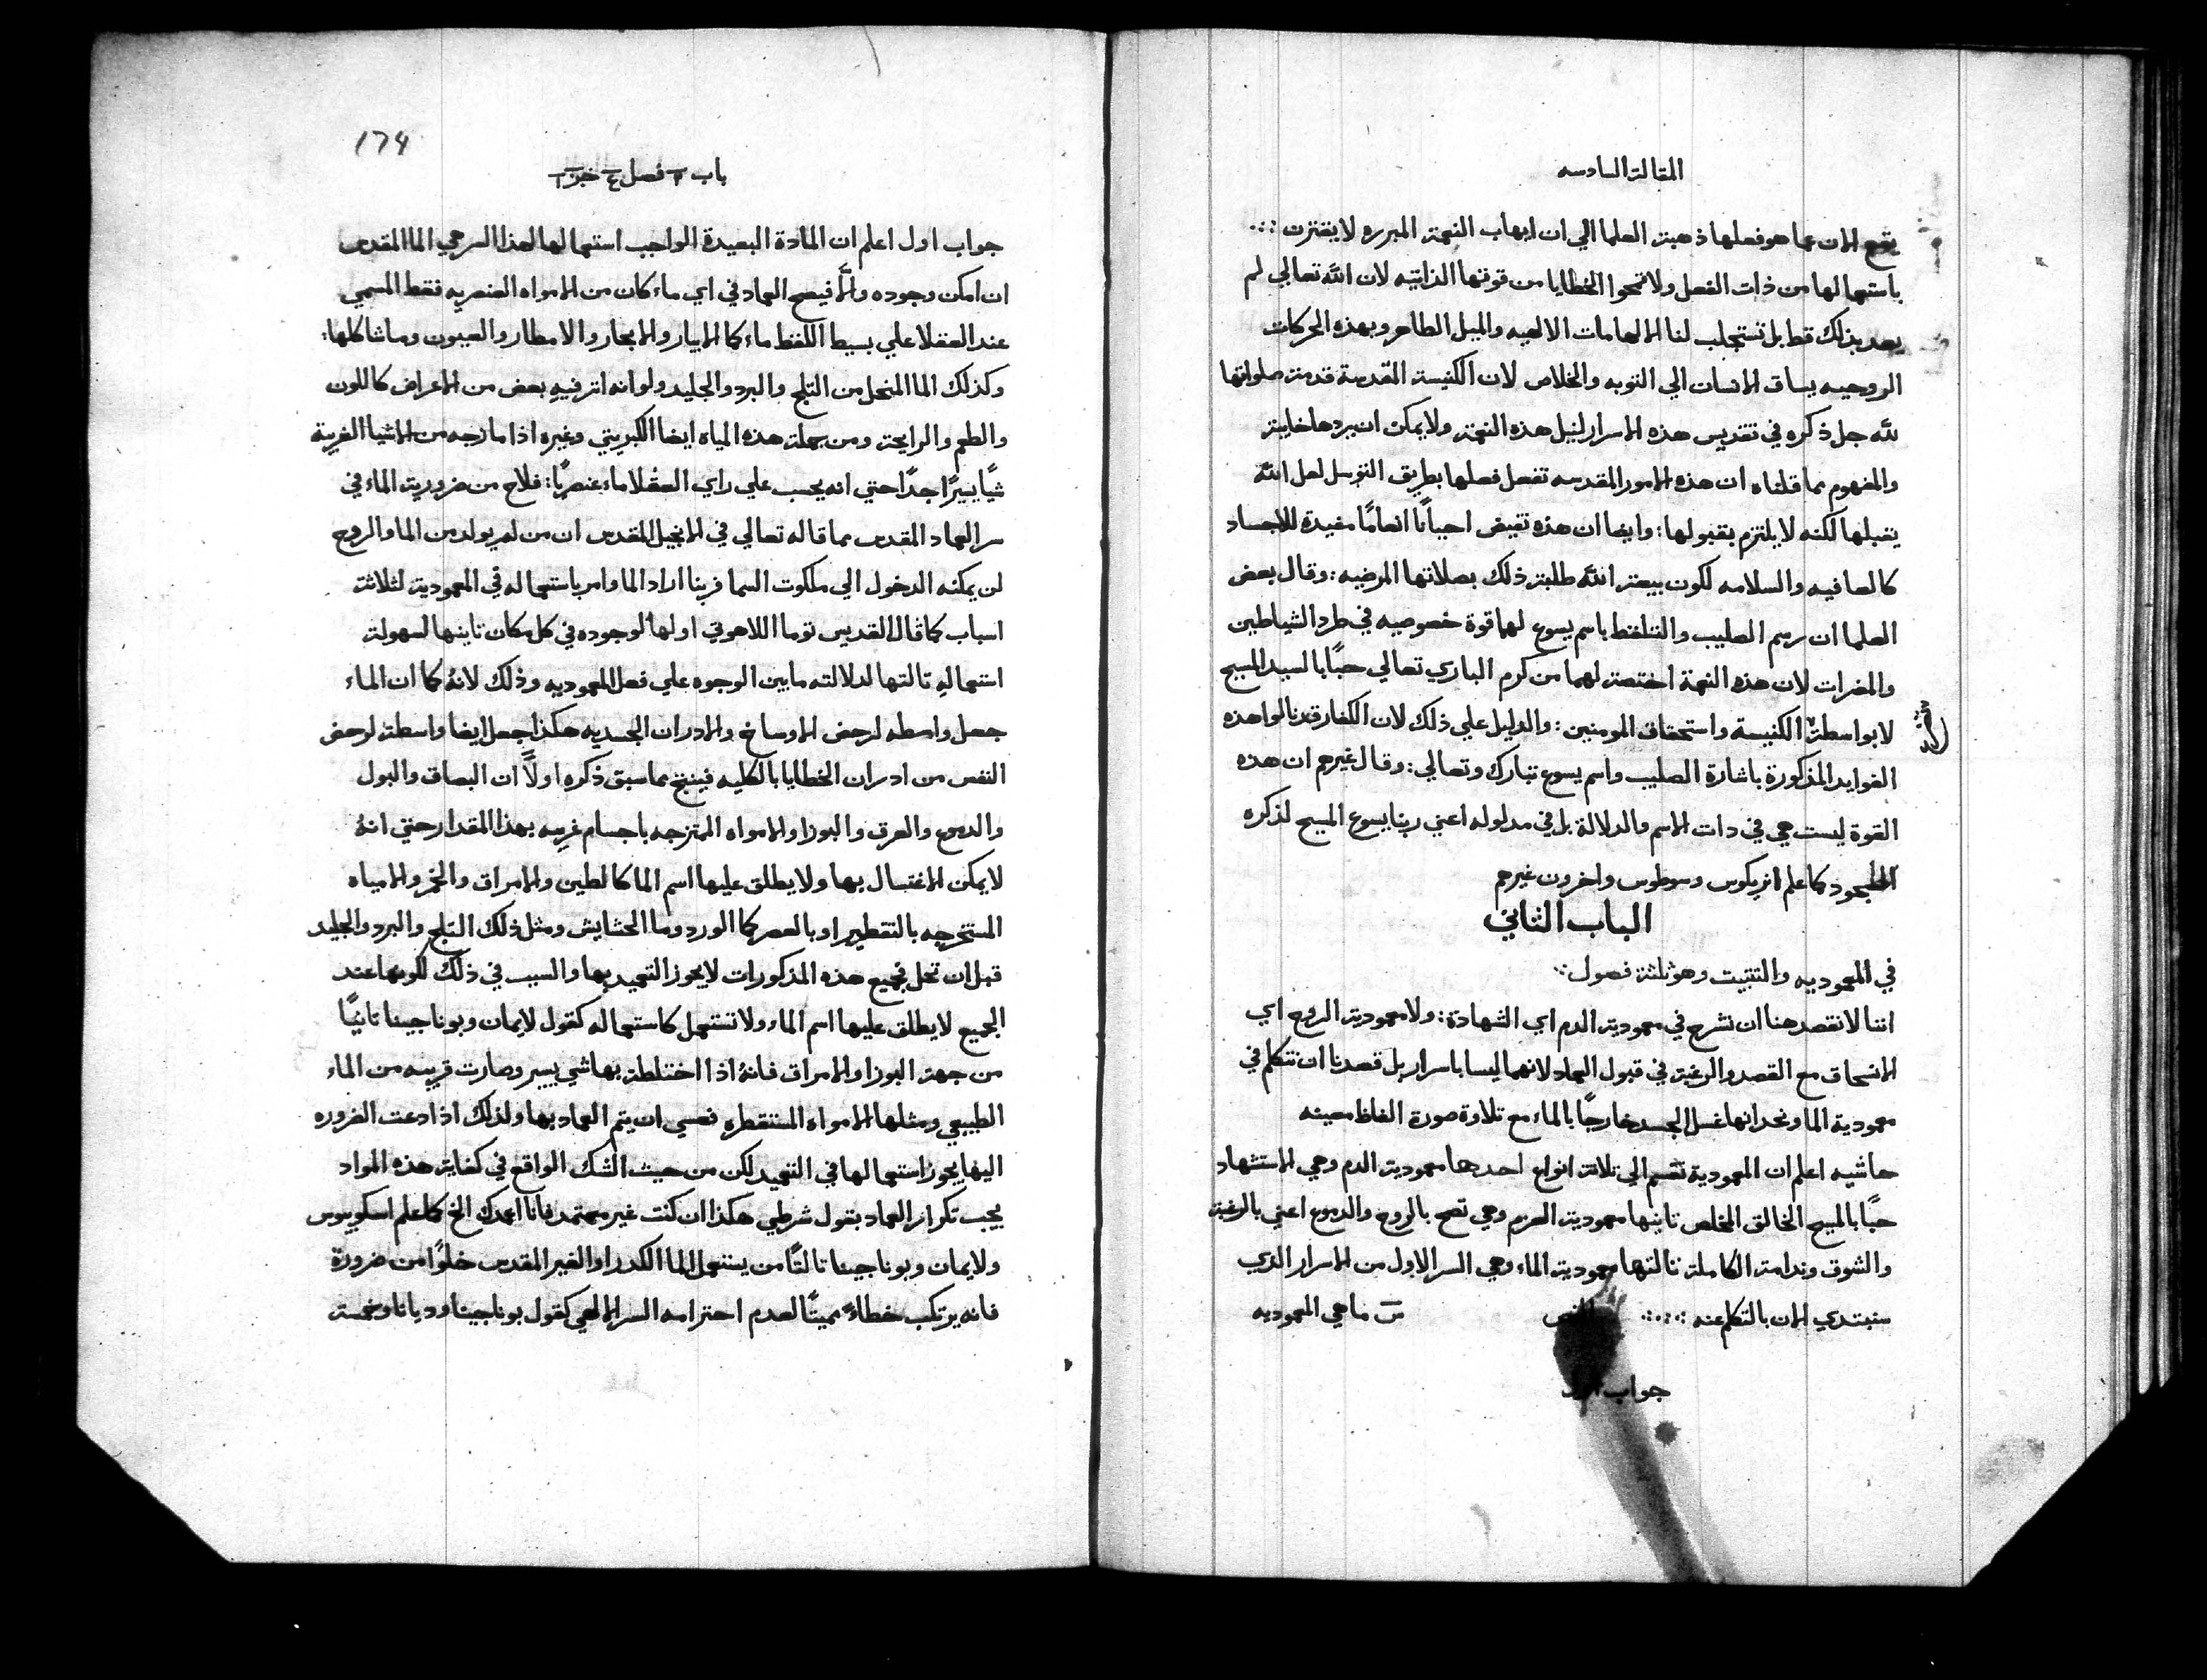 المقالة السادسه
يقع الان عما هو فعلها ذهبت العلما الي ان ايهاب النعمة المبرره لا يقترن
باستعمالها من ذات الفعل ولا تمحوا الخطايا من قوتها الذاتيه لان الله تعالي لم
يعد بذلك قط بل تستجلب لنا الالهامات الالهيه والميل الطاهر وبهذه الحركات
الروحيه يساق الانسان الي التوبه والخلاص لان الكنيسة المقدسة قدمت صلواتها
لله جل ذكره في تقديس هذه الاسرار لنيل هذه النعمة ولا يمكن ان يردها خايبة
والمفهوم مما قلناه ان هذه الامور المقدسه تفعل فعلها بطريق التوسل لعل الله
يقبلها لكنه لا يلتزم بقبولها: وايضا ان هذه تفيض احيانًا انعامًا مفيدة للاجساد
كالعافيه والسلامه لكون بيعة الله طلبت ذلك بصلاتها المرضيه: وقال بعض
العلما ان رسم الصليب والتلفظ باسم يسوع لهما قوة خصوصيه في طرد الشياطين
والمضرات لان هذه النعمة اختصت لهما من كرم الباري تعالي حبًا بالسيد المسيح
لا بواسطة الكنيسة واستحقاق المومنين: والدليل علي ذلك لان الكفار قد نالوا هذه
الفوايد المذكورة باشارة الصليب واسم يسوع تبارك وتعالي: وقال غيرهم ان هذه
القوة ليست هي في دات الاسم والدلالة بل في مدلوله اعني ربنا يسوع المسيح لذكره
السجود كما علم انريكوس وسوطوس واخرون غيرهم
الباب الثاني
في المعموديه والتتبيت وهو ثلثة فصول
اننا لا نقصد هنا ان نشرح في معمودية الدم اي الشهادة: ولا معمودية الروح اي
الانسحاق مع القصد والرغبة في قبول العماد لانهما ليسا باسرار بل قصدنا ان نتكلم في
معمودية الما ونحد انها غسل الجسد خارجًا بالماء مع تلاوة صورة الفاظ معينه
حاشيه اعلم ان المعمودية تقسم الي تلاتة انواع احدها معمودية الدم وهي الاستشهاد
حبًا بالمسيح الخالق المخلص تانيها معمودية العزم وهي تصح بالروح والدموع اعني بالرغبة
والشوق وندامة الكاملة تالتها معمودية الماء وهي السر الاول من الاسرار الدي
سنبتدي الان بالتكلم عنه النص س ما هي المعموديه
جواب اول
174
باب ٢ فصل ٤ جزء ١
جواب اول اعلم ان المادة البعيدة الواجب استعمالها لهذا السر هي الما المقدس
ان امكن وجوده والَّا فيصح العماد في اي ماء كان من الامواه العنصريه فقط المسمي
عند العقلا علي بسيط اللفظ ماء كما الابيار والابحار والامطار والعيون وما شاكلها:
وكذلك الما المنحل من التلج والبرد والجليد ولو انه اتر فيهِ بعض من الاعراض كاللون
والطعم والرايحة ومن جملة هذه المياه ايضا الكبريتي وغيره اذا مازجه من الاشيا الغريبة
شيًا يسيرًا جدًا حتي انه يحسب علي راي العقلا ماء عنصريًا: فلاح من ضرورية الماء في
سر العماد المقدس مما قاله تعالي في الانجيل المقدس ان من لم يولد من الما والروح
لن يمكنه الدخول الي ملكوت السما فربنا اراد الما وامر باستعماله في المعمودية لثلاثة
اسباب كما قال القديس توما اللاهوتي اولها لوجوده في كل مكان تانيها لسهولة
استعمالهِ تالتها لدلالته ما بين الوجوه علي فعل المعموديه وذلك لانهُ كما ان الماء
جعل واسطه لرحض الاوساخ والادران الجسديه هكذا جعل ايضا واسطة لرحض
النفس من ادران الخطايا بالكليه فينتج مما سبق ذكره اولًا ان البصاق والبول
والدموع والعرق والبوزا والامواه الممتزجه باجسام غريبه بهذا المقدار حتي انهُ
لا يمكن الاغتسال بها ولا يطلق عليها اسم الما كالطين والامراق والخمر والامياه
المستخرجه بالتقطير او بالعصر كما الورد وما الحشايش ومثل ذلك التلج والبرد والجليد
قبل ان تحل فجميع هذه المذكورات لا يجوز التعميد بها والسبب في ذلك لكونها عند
الجميع لا يطلق عليها اسم الماء ولا تستعمل كاستعماله كقول لايمان وبوناجينا تانيًا
من جهة البوزا والامراق فانهُ اذا اختلطت بها شي يسير وصارت قريبه من الماء
الطبيعي ومثلها الامواه المستقطره فعسي ان يتم العماد بها ولذلك اذا دعت الضروره
اليها يجوز استعمالها في التعميد لكن من حيث الشك الواقع في كفاية هذه المواد
يجب تكرار العماد بقول شرطي هكذا ان كنت غير معتمد فانا اعمدك الخ كما علم اسكوبوس
ولايمان وبوناجينا تالتًا من يستعمل الما الكدر او الغير المقدس خلوًا من ضرورة
فانه يرتكب خطاءً مميتًا لعدم احترامه السر الالهي كقول بوناجينا وديانا وخمسة